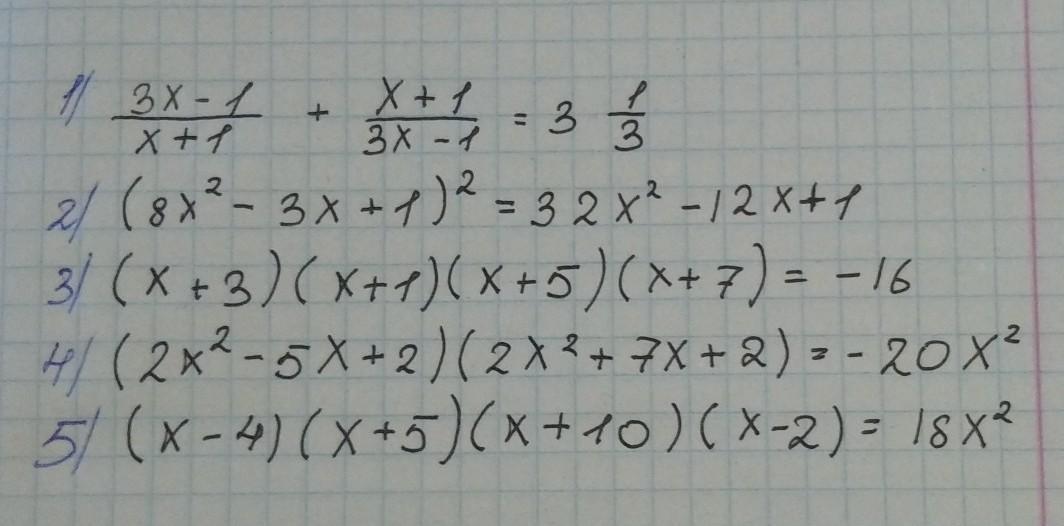 1) (3x - 1)/(x + 1) + (x + 1)/(3x - 1) = 3 1/3
2) (8x² - 3x + 1)² = 32x² - 12x + 1
3) (x + 3)(x + 1)(x + 5)(x + 7) = -16
4) (2x² - 5x + 2)(2x² + 7x + 2) = -20x²
5) (x - 4)(x + 5)(x + 10)(x - 2) = 18x²